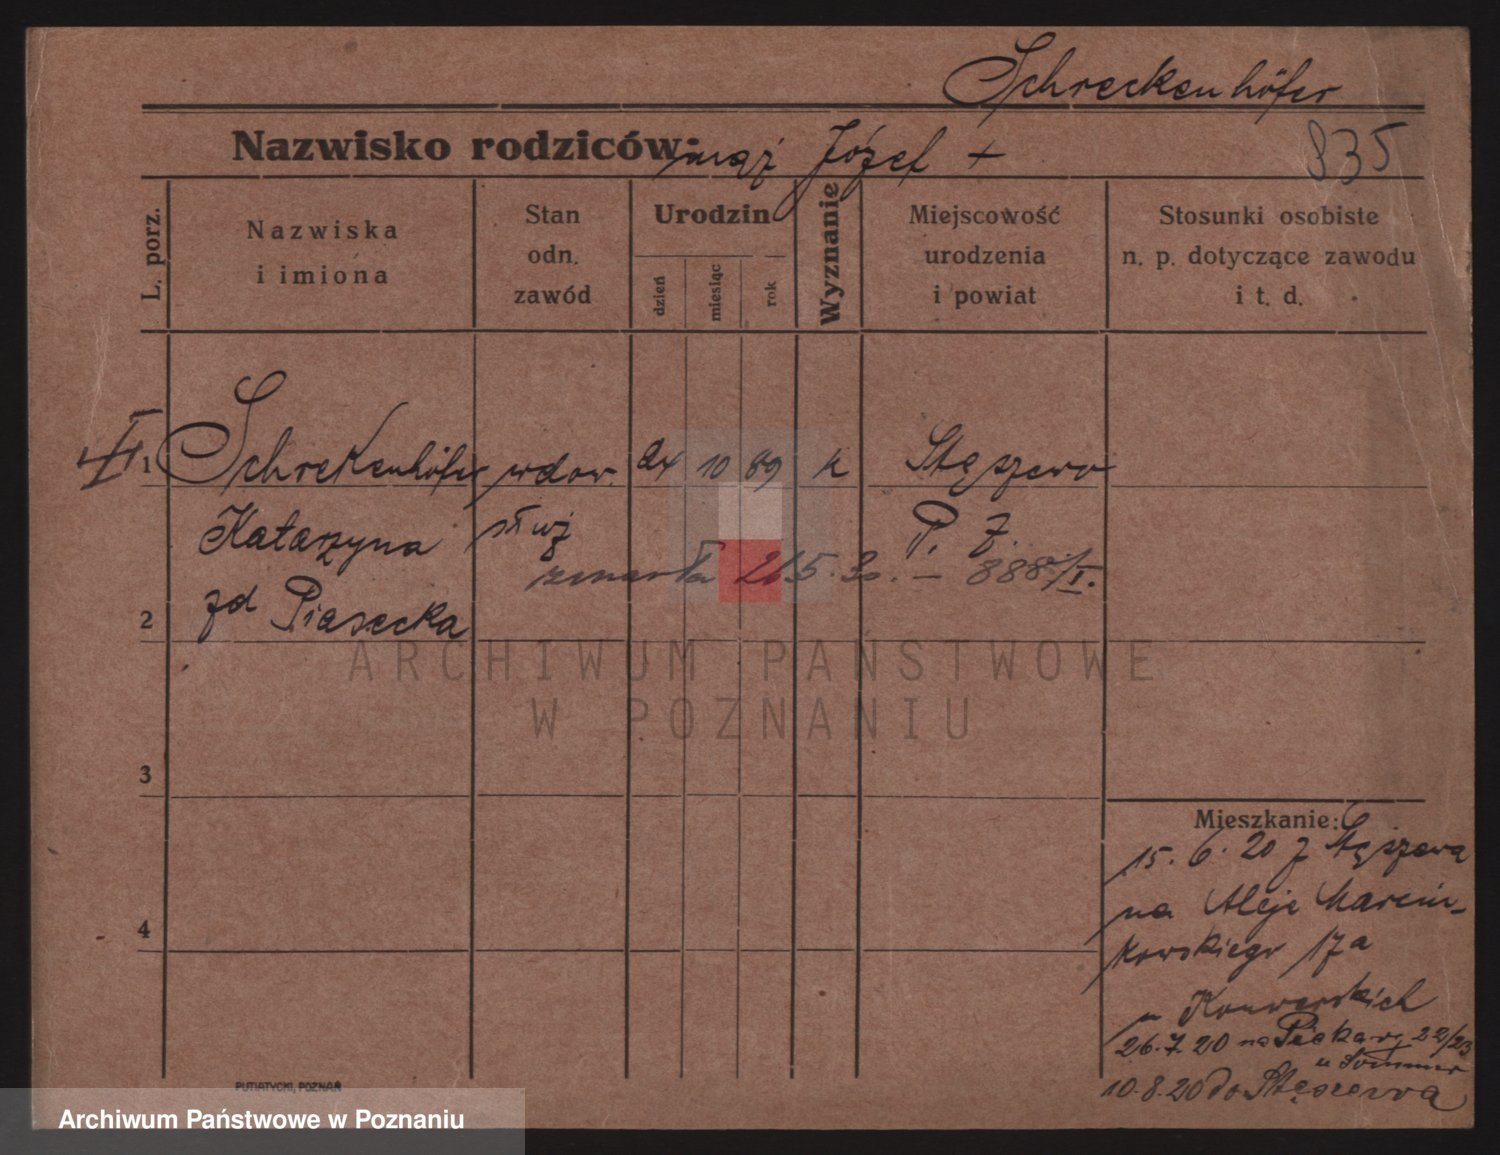 Schreckenhöfer
Nazwisko rodziców: mąż Józef +
835
L. porz.
Nazwiska
i imiona
Stan
odn.
zawód
Urodzin
dzień
miesiąc
rok
Wyznanie
Miejscowość
urodzenia
i powiat
Stosunki osobiste
n. p. dotyczące zawodu
i t. d.
1 Schrekenhöfer wdow. 24 10 89 k Stęszewo
Katarzyna służ P. Z.
zmarła 21.5.30. — 888/I.
zd Piasecka
2
ARCHIWUM PAŃSTWOWE
W POZNANIU
3
Mieszkanie:
15. 6. 20 z Stęszewa
na Aleje Marcin-
4
kowskiego 17a
u Konwerskich
26.7.20 na Piekary 22/23
u Sommer
10.8.20 do Stęszewa
PUTIATYCKI, POZNAŃ
Archiwum Państwowe w Poznaniu